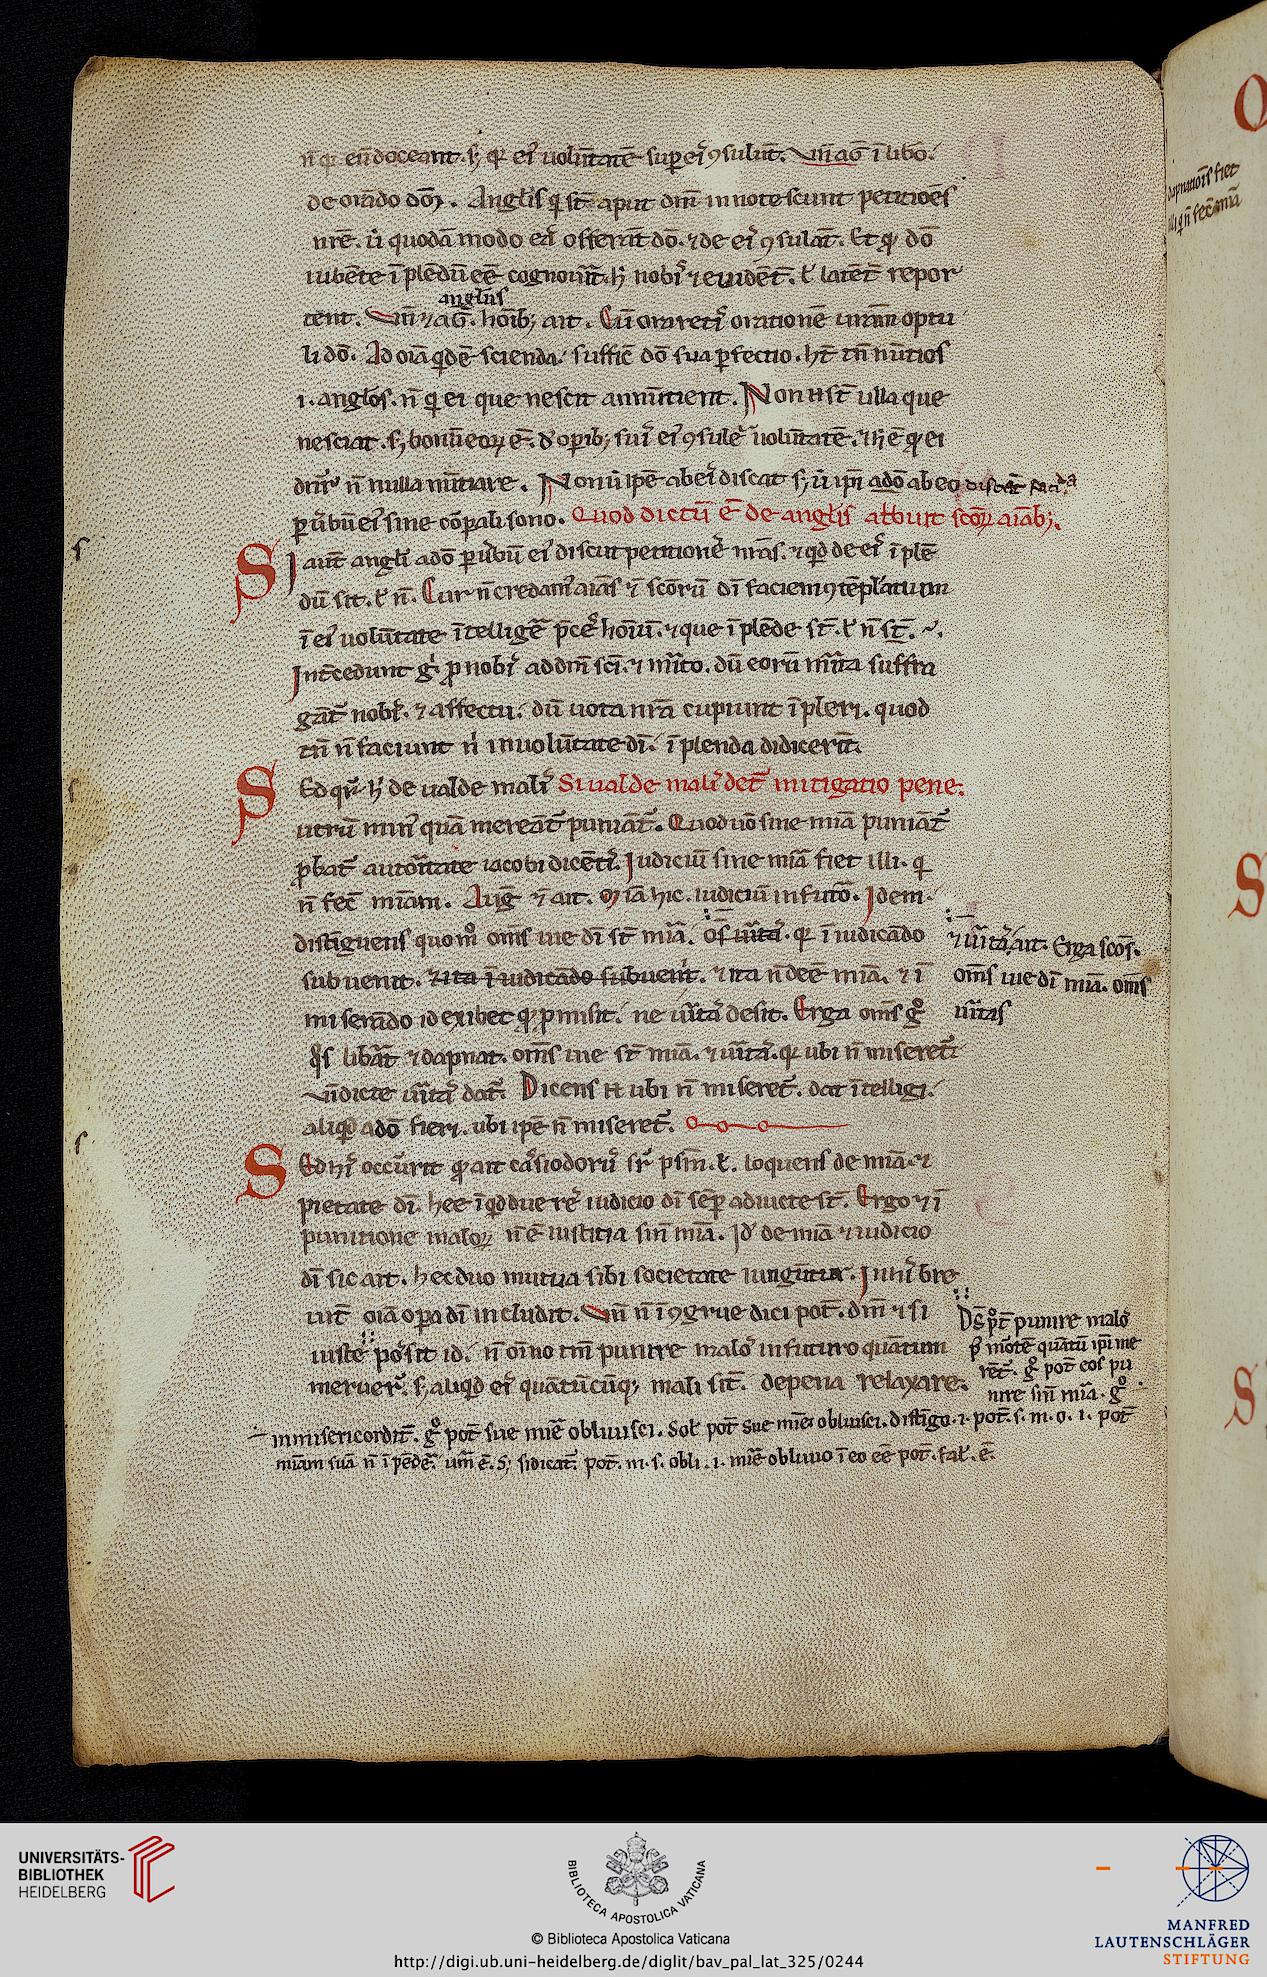 n̄ qͥ eū doceant. sꝫ qͥ ei᷒ uolūtatē sup̱ ei᷒ ꝯsulūt. Vn̄ aḡ ī libō.
de orādo dōꝫ. Angl̄is qͥ st̄ aput dm̄ innotescunt petitiōēs
nr̄e. ut̉ quodā modo eas offerāt dō. ⁊ de eis ꝯsulāt. Et qͥ dō
iubēte īplēdū eē cognouer̄t. h̄ nobis ⁊ euidēt̄. ł latēt̄ repor
tent. Vn̄ ⁊ aḡ. anglus hoīb; ait. Cū oraretis orationē uram optu
li dō. Ad oīa qͥdē scienda. suffic̄ dō sua ꝑfectio. ht̄ tn̄ nūtios
.i. anglōs. n̄ qͥ ei que nescit annūtient. Non .n. st̄ ulla que
nesciat. sꝫ bonū eoꝝ ē. d̄ opib; suis ei᷒ ꝯsulē uolūtatē. ⁊ h̄ ē qͥ ei
dn̄r n̄ nulla nūtiare. Non ut̉ ipē ab eis discat sꝫ ut̉ ip̄i adō ab eo discāt faciēda
ꝑ ūbū ei᷒ sine cōꝑali sono. Quod dictū ē de anglis att̄buit scōꝝ aīab;.
SI aūt angli adō ꝑ ūbū ei᷒ discūt petitiones nrās. ⁊ qd̄ de eis īplē
dū sit. ł n̄. Cur n̄ credam᷒ aīas ⁊ scōrū dī faciem ꝯtēplatium
ī ei᷒ uolūtate ītelligē p̄ces hoīm. ⁊ que īplēde st̄. ł n̄ st̄.
Int̄cedunt ḡ pro nobis ad dm̄ scī. ⁊ mīto. dū eorū mīta suffra
gāt̄ nobis. ⁊ affectu. dū uota nrā cupiunt īpleri. quod
tn̄ n̄ faciunt nͥ in uolūtate dī. īplenda didicerīt.
SEd qͥ h̄ de ualde malis Si ualde malis det̄ mitigatio pene.
utrū min᷒ quā mereāt̄ puniāt̄. Quod uō sine mīa puniāt̄
ꝓbat̄ autoritate iacobi dicētis. Iudiciū sine mīa fiet illi. qͥ
n̄ fec̄ mīam. Auḡ ⁊ ait. Mīa hic. iudiciū in futō. Idem.
distīguens quom̊ om̄s uie dī st̄ mīa. os̄ uītas. qͥ ī iudicādo
subuenit. ⁊ ita ī iudicādo subuenit. ⁊ ita n̄ deē mīa. ⁊ ī
miserādo id exibet qͥ ꝓmisit. ne uītas desit. Erga om̄s g̊
⁊ uītas. ait. Erga scōs.
om̄s uie dī mīa. om̄s
uītas
qͦs libāt ⁊ dapnat. om̄s uie st̄ mīa. ⁊ uītas. qͥ ubi n̄ miseret̄
uīdicte uītas dat̄. Dicens .n. ubi n̄ miseret̄. dat ītelligi.
aliqͥd adō fieri. ubi ipē n̄ miseret̄.
SEd his occurrit qͥ ait cassiodorus sr̄ psm̄. L. loquens de mīa. ⁊
pietate dī. hee īqͥd due res iudicio dī semp̱ adiucte st̄. Ergo ⁊ ī
punitione maloꝝ n̄ ē iustitia sin̄ mīa. Id̄ de mīa ⁊ iudicio
dī sic ait. hec duo mutua sibi societate iungūtur. In his bre
uit̄ oīa opa dī includit. Vn̄ n̄ īcōgrue dici pot̄. dm̄ ⁊ si
iuste possit id. n̄ oīno tm̄ punire malos in futuro quātum
meruer̄. sꝫ aliqͥd eis quātūcūqꝫ mali sīt. de pena relaxare.
Ds̄ pt̄ punire malos
ꝑ morte quātū ip̄i me
rēt̄. g̊ pot̄ eos pu
nire sin̄ mīa. g̊
inmisericordit̄. g̊ pot̄ sue mīe obliuisci. Sol̄. pot̄ sue mīe obliuisci. distīgo. .i. pot̄. s. m. o. i. pot̄
mīam suā n̄ īpēdē. uīm ē. S; si dicat̄. pot̄. m. s. obli. .i. mīe obliuio ī eo eē pot̄. fal̄. ē.
UNIVERSITÄTS-
BIBLIOTHEK
HEIDELBERG
BIBLIOTECA APOSTOLICA VATICANA
© Biblioteca Apostolica Vaticana
http://digi.ub.uni-heidelberg.de/diglit/bav_pal_lat_325/0244
MANFRED
LAUTENSCHLÄGER
STIFTUNG